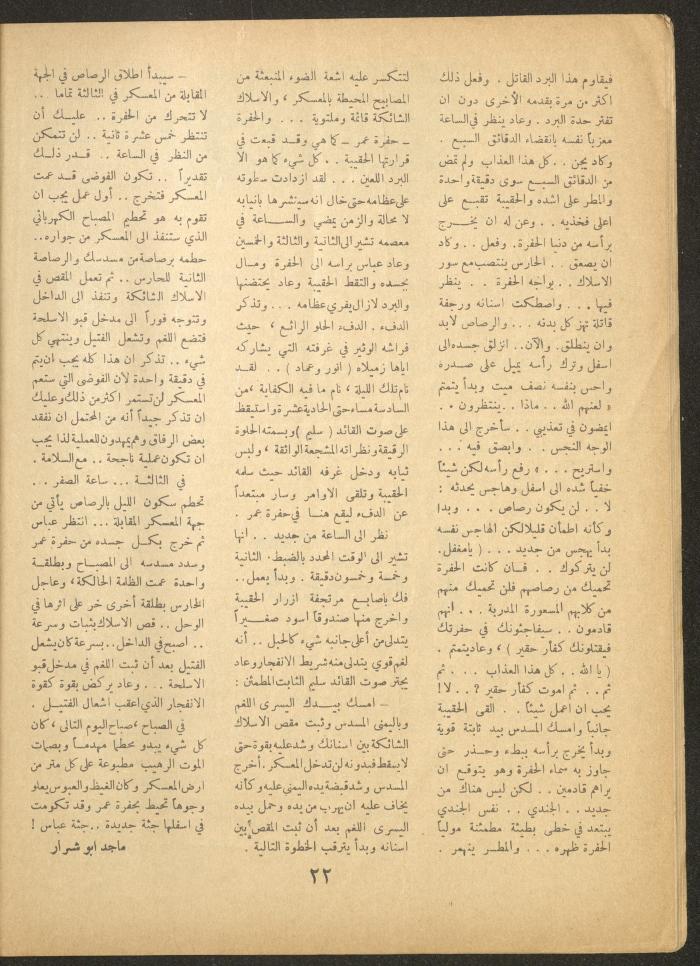 فيقاوم هذا البرد القاتل . وفعل ذلك
اكثر من مرة بقدمه الأخرى دون ان
تفتر حدة البرد . وعاد ينظر في الساعة
معزياً نفسه بانقضاء الدقائق السبع .
وكاد يجن . كل هذا العذاب ولم تمض
من الدقائق السبع سوى دقيقة واحدة
والمطر على اشده والحقيبة تقبع على
اعلى فخذيه . . وعن له ان يخرج
برأسه من دنيا الحفرة . وفعل . . وكاد
ان يصعق . . الحارس ينتصب مع سور
الاسلاك . . يواجه الحفرة . . ينظر
فيها . . . واصطكت اسنانه ورجفة
قاتلة تهز كل بدنه . . . والرصاص لابد
وان ينطلق . والآن . . انزلق جسده الى
اسفل وترك رأسه يميل على صدره
واحس بنفسه نصف ميت وبدأ يتمتم
« لعنهم الله . . ماذا . . ينتظرون . .
ايمضون في تعذيبي . . سأخرج الى هذا
الوجه النجس . . وابصق فيه . . .
واستريح . . . » رفع رأسه لكن شيئاً
خفياً شده الى اسفل وهاجس يحدثه :
لا . . لن يكون رصاص . . . وبدا
وكأنه اطمأن قليلا لكن الهاجس نفسه
بدأ يهجس من جديد . . . ( يا مغفل .
لن يتركوك . . فان كانت الحفرة
تحميك من رصاصهم فلن تحميك منهم
من كلابهم المسعورة المدربة . . . انهم
قادمون . . سيفاجئونك في حفرتك
فيقتلونك كفأر حقير ) ، وعاد يتمتم .
( يا الله . . كل هذا العذاب . . . ثم
ثم . . ثم اموت كفأر حقير ؟ . . لا !
يجب ان اعمل شيئاً . . القى الحقيبة
جانباً وامسك المسدس بيد ثابتة قوية
وبدأ يخرج برأسه ببطء وحذر حتى
جاوز به سماء الحفرة وهو يتوقع ان
يراهم قادمين . . لكن ليس هناك من
جديد . . الجندي . . نفس الجندي
يبتعد في خطى بطيئة مطمئنة مولياً
الحفرة ظهره . . . والمطر ينهمر .
لتتكسر عليه اشعة الضوء المنبعثة من
المصابيح المحيطة بالمعسكر ، والاسلاك
الشائكة قائمة وملتوية . . . والحفرة
ــ حفرة عمر ــ كما هي وقد قبعت في
قرارتها الحقيبة . . كل شيء كما هو الا
البرد اللعين . . . لقد ازدادت سطوته
على عظامه حتى خال انه سينشرها بانيابه
لا محالة والزمن يمضي والساعة في
معصمه تشير الى الثانية والثالثة والخمسين
وعاد عباس براسه الى الحفرة ومال
بجسده والتقط الحقيبة وعاد يحتضنها
والبرد لا زال يفري عظامه . . . وتذكر
الدفء . الدفء الحلو الرائع ، حيث
فراشه الوثير في غرفته التي يشاركه
اياها زميلاه ( انور وعماد ) . . لقد
نام تلك الليلة ، نام ما فيه الكفاية ، من
السادسة مساء حتى الحادية عشرة واستيقظ
على صوت القائد ( سليم ) وبسمته الحلوة
الرقيقة ونظراته المشجعة الواثقة ، ولبس
ثيابه ودخل غرفه القائد حيث سلمه
الحقيبة وتلقى الاوامر وسار مبتعداً
عن الدفء ليقع هنا في حفرة عمر .
نظر الى الساعة من جديد . . انها
تشير الى الوقت المحدد بالضبط . الثانية
وخمسة وخمسون دقيقة . وبدأ يعمل . .
فك باصابع مرتجفة ازرار الحقيبة
واخرج منها صندوقاً اسود صغيراً
يتدلى من أعلى جانبه شيء كالحبل . . أنه
لغم قوي يتدلى منه شريط الانفجار وعاد
يجتر صوت القائد سليم الثابت المطمئن :
ــ امسك بيدك اليسرى اللغم
وباليمنى المسدس وثبت مقص الاسلاك
الشائكة بين اسنانك وشد عليه بقوة حتى
لا يسقط فبدونه لن تدخل المعسكر . أخرج
المسدس وشد قبضة يده اليمنى عليه وكأنه
يخاف عليه ان يهرب من يده وحمل بيده
اليسرى اللغم بعد أن ثبت المقص بين
اسنانه وبدأ يترقب الخطوة التالية .
ــ سيبدأ اطلاق الرصاص في الجهة
المقابلة من المعسكر في الثالثة تماما . .
لا تتحرك من الحفرة . . عليك أن
تنتظر خمس عشرة ثانية . . لن تتمكن
من النظر في الساعة . . قدر ذلك
تقديراً . . تكون الفوضى قد عمت
المعسكر فتخرج . . أول عمل يجب ان
تقوم به هو تحطيم المصباح الكهربائي
الذي ستنفذ الى المعسكر من جواره . .
حطمه برصاصة من مسدسك والرصاصة
الثانية للحارس . . ثم تعمل المقص في
الاسلاك الشائكة وتنفذ الى الداخل
وتتوجه فوراً الى مدخل قبو الاسلحة
فتضع اللغم وتشعل الفتيل وينتهي كل
شيء . . تذكر ان هذا كله يجب ان يتم
في دقيقة واحدة لأن الفوضى التي ستعم
المعسكر لن تستمر اكثر من ذلك وعليك
ان تذكر جيداً أنه من المحتمل ان نفقد
بعض الرفاق وهم يمهدون للعملية لذا يجب
ان تكون عملية ناجحة . . مع السلامة .
في الثالثة . . . ساعة الصفر . . .
تحطم سكون الليل بالرصاص يأتي من
جهة المعسكر المقابلة . . . انتظر عباس
ثم خرج بكل جسده من حفرة عمر
وسدد مسدسه الى المصباح وبطلقة
واحدة عمت الظلمة الحالكة ، وعاجل
الحارس بطلقة أخرى خر على اثرها في
الوحل . . قص الاسلاك بثبات وسرعة
. . اصبح في الداخل . . بسرعة كان يشعل
الفتيل بعد أن ثبت اللغم في مدخل قبو
الاسلحة . . . وعاد يركض بقوة كقوة
الانفجار الذي اعقب اشعال الفتيل .
في الصباح ، صباح اليوم التالى ، كان
كل شيء يبدو محطما مهدماً وبصمات
الموت الرهيب مطبوعة على كل متر من
ارض المعسكر وكان الغيظ والعبوس يعلو
وجوهاً تحيط بحفرة عمر وقد تكومت
في اسفلها جثة جديدة . . جثة عباس !
ماجد ابو شرار
٢٢